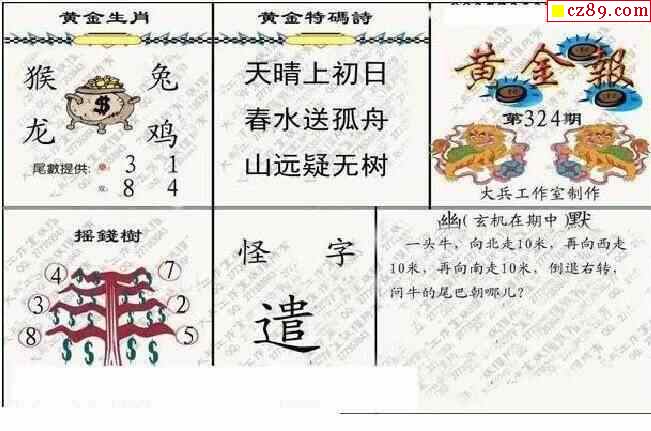 cz89.com
黄金生肖
猴 兔
$
龙 鸡
尾數提供: 3 1
8 4
黄金特碼詩
天晴上初日
春水送孤舟
山远疑无树
黄金報
第324期
大兵工作室制作
摇錢樹
4 7
3 2
8 5
$ $ $ $ $ $
怪 字
遣
幽(玄机在期中)默
一头牛，向北走10米，再向西走
10米，再向南走10米，倒退右转，
问牛的尾巴朝哪儿?